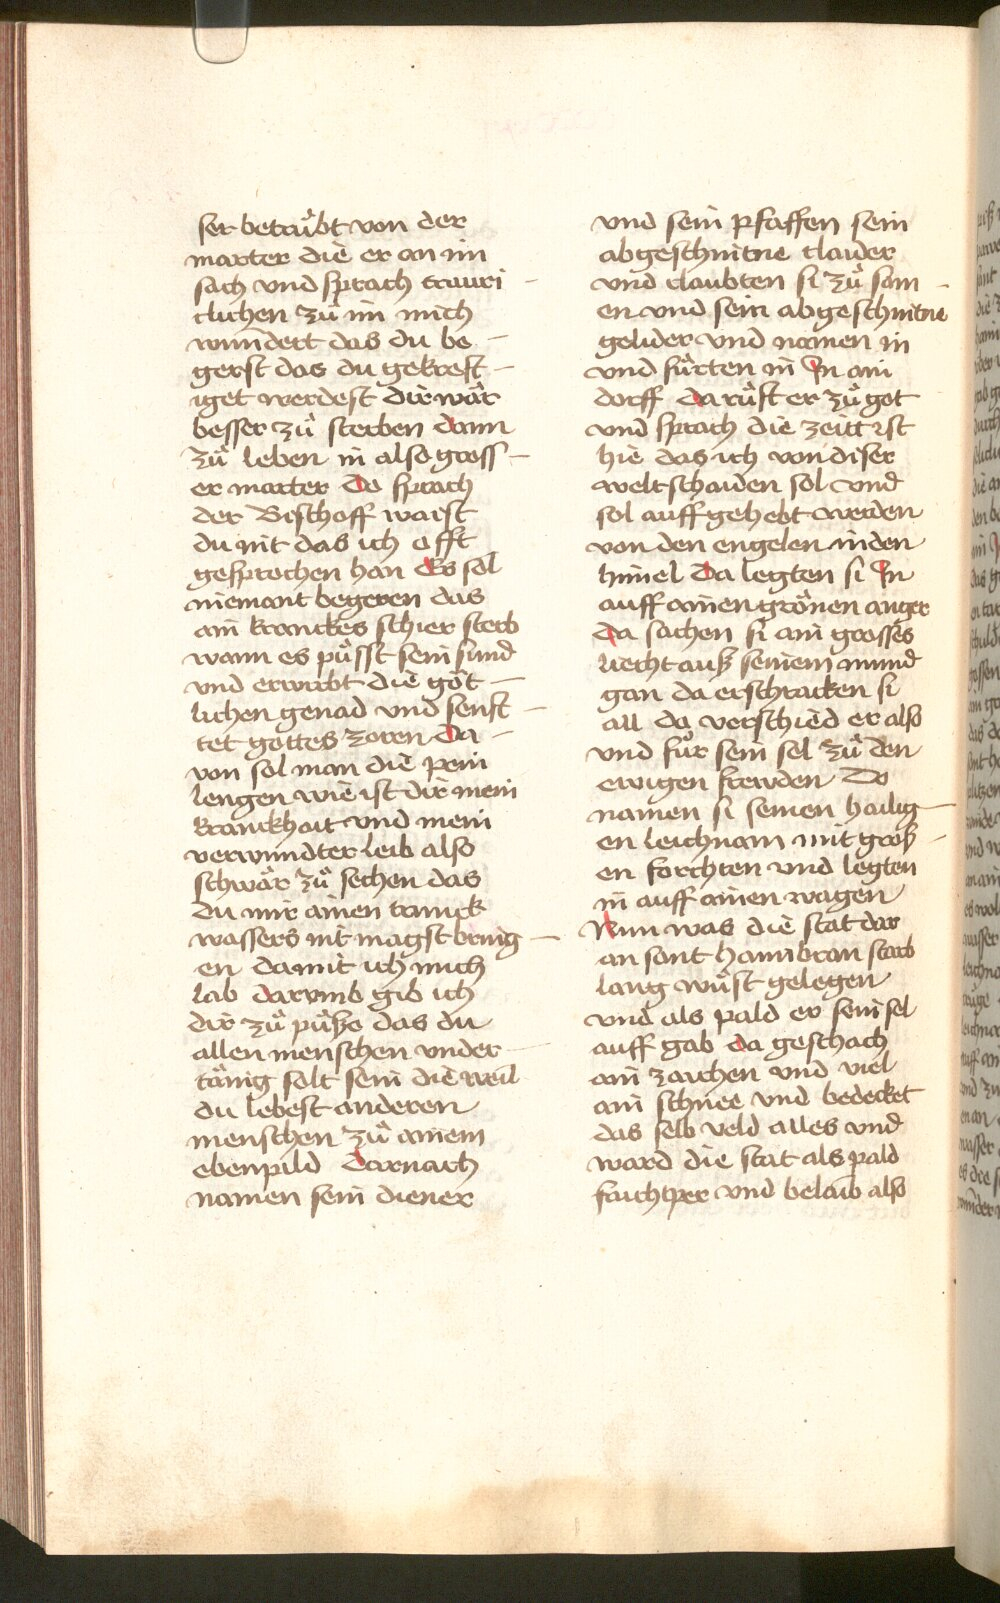 ser betrübt von der
marter die er an im
sach vnd sprach trauri
clichen zů im mich
wundert das du be
gerst das du gekreft
iget werdest dir wär
besser zů sterben dann
zů leben in also gross
er marter Do sprach
der Bischoff waist
du nit das ich offt
gesprochen han Es sol
niemant begeren das
ain kranckes schier sterb
wann es püsst sein sünd
vnd erwirbt die göt
lichen genad vnd senft
tet gottes zoren Da
von sol man die pein
lengen wie ist dir mein
kranckhait vnd mein
verwundter leib also
schwär zů sechen das
du mir ainen trinck
wassers nit magst bring
en damit ich mich
lab darumb gib ich
dir zů půsze das du
allen menschen vnder
tänig solt sein die weil
du lebest anderen
menschen zů ainem
ebenpild Darnach
namen sein diener
vnd sein pfaffen sein
abgeschnitne clauder
vnd claubten si zů sam
en vnd sein abgeschnitne
gelider vnd namen in
vnd fürten in In ain
dorff da růft er zů got
vnd sprach die zeitt ist
hie das ich von diser
welt schaiden sol vnd
sol auff gehebt werden
von den engelen in den
himel Da legten si In
auff ainen grönen anger
Da sachen si ain grosses
liecht ausz seinem mund
gan da erschracken si
all da verschied er also
vnd für sein sel zů den
ewigen frewden Do
namen si seinen hailig
en leichnam mit grosz
en forchten vnd legten
in auff ainen wagen
Nun was die stat dar
an sant hamibran starb
lang wůst gelegen
vnd als pald er sein sel
auff gab da geschach
ain zaichen vnd viel
ain schnee vnd bedecket
das selb veld alles vnd
ward die stat als pald
fruchtper vnd belaib also